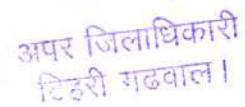 अपर जिलाधिकारी
टिहरी गढवाल।